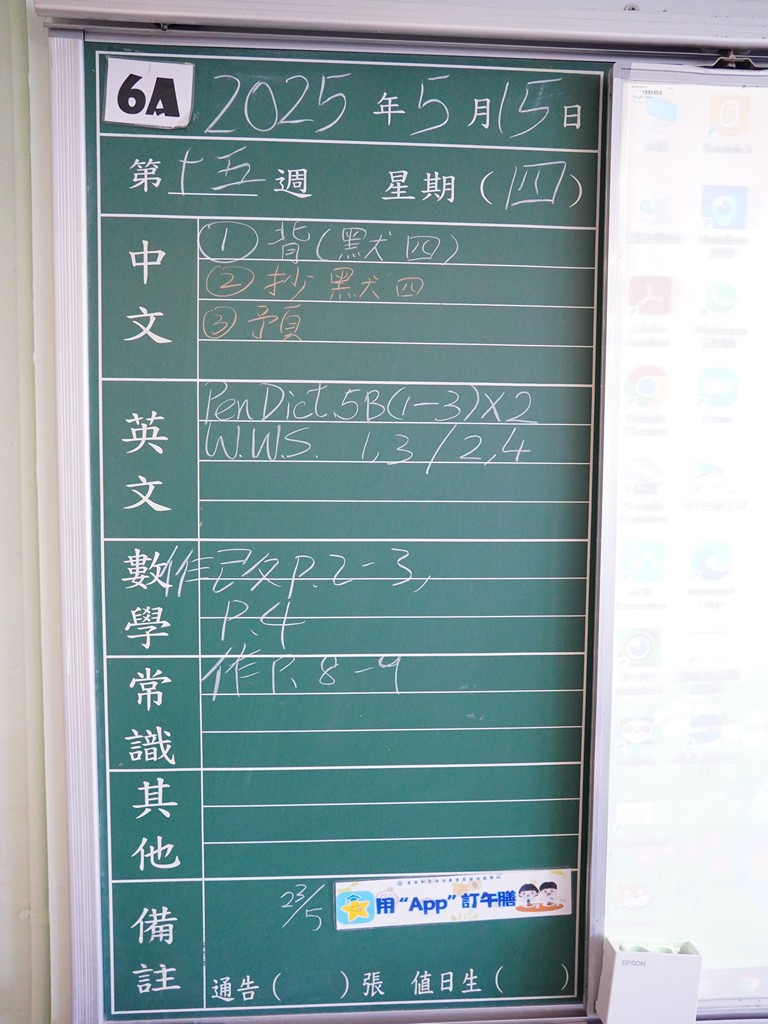 6A 2025年5月15日
第十五週 星期（四）
中文
① 背（默四）
② 抄默四
③ 預
英文
Pen Dict. 5B(1-3)X2
W.W.S. 1,3/2,4
數學
作已改P.2-3,
P.4
常識
作P. 8-9
其他
備註
23/5 用“App”訂午膳
通告（ ）張 值日生（ ）
EPSON